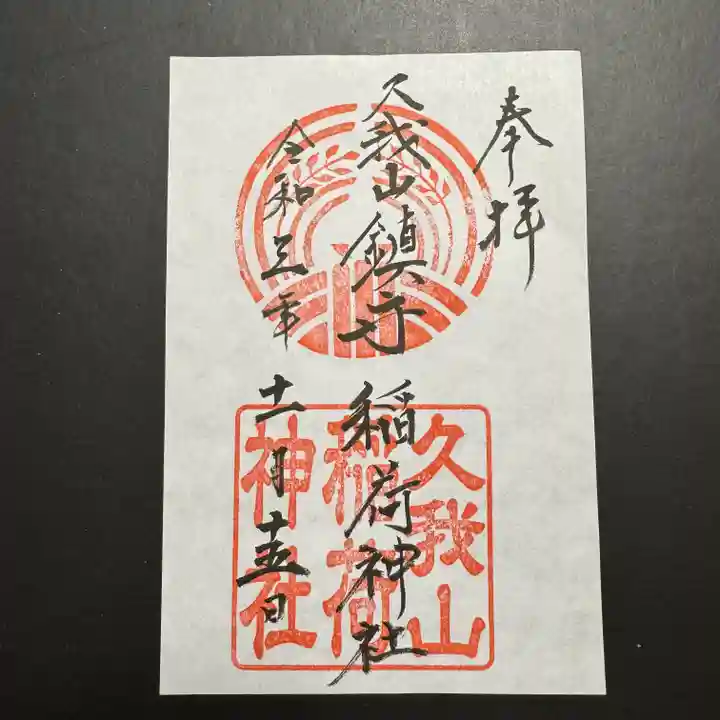 奉拝
久我山鎮守 稲荷神社
令和三年 十一月十五日
久我山
稲荷
神社